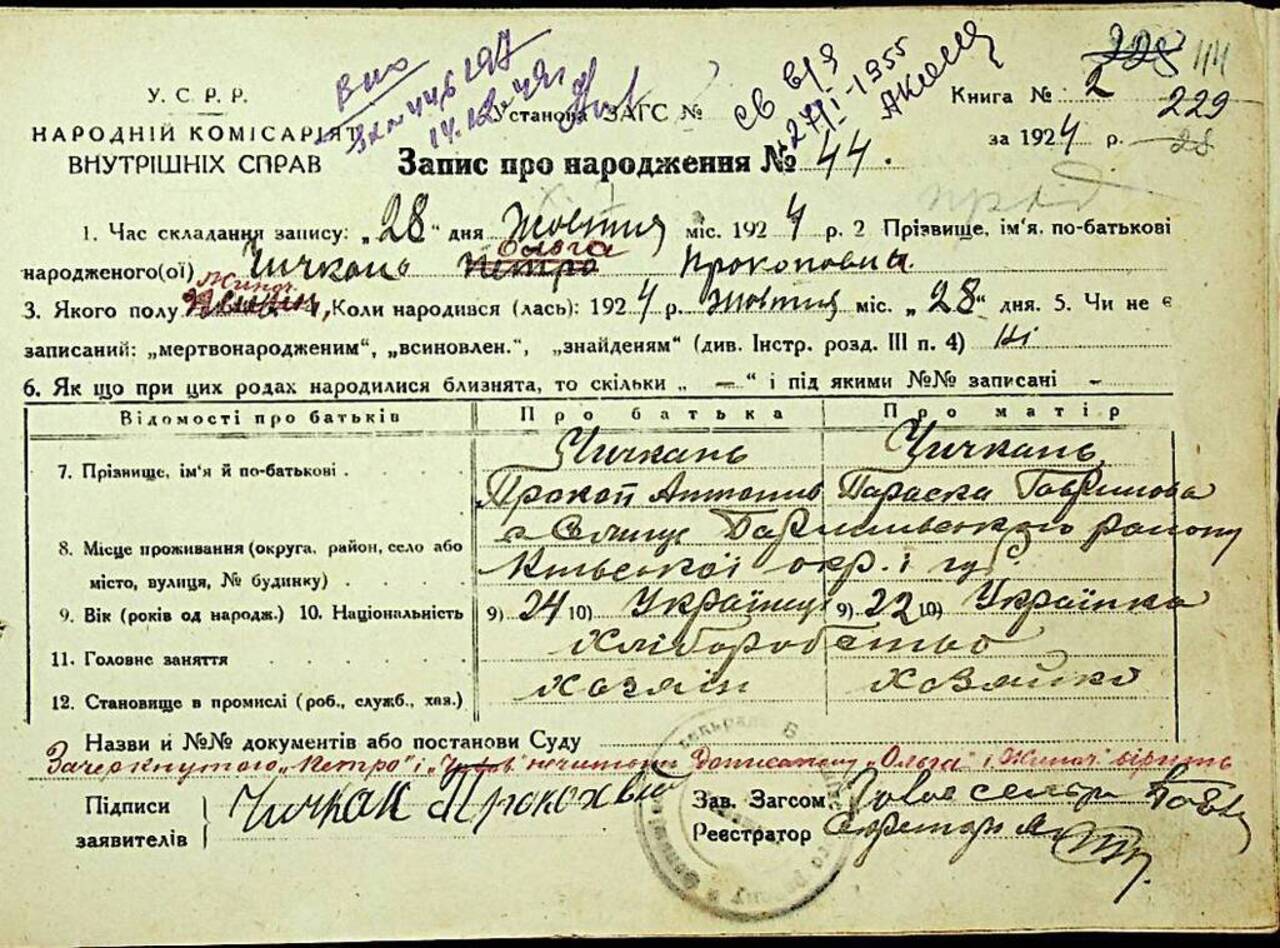 228 44
У. С. Р. Р.
Установа ЗАГС №
Книга № 2
229
НАРОДНІЙ КОМІСАРІЯТ
за 1924 р. 28
ВНУТРІШНІХ СПРАВ
Запис про народження № 44.
1. Час складання запису: „28" дня Жовтня міс. 1924 р. 2 Прізвище, ім'я, по-батькові
Ольга
народженого(ої) Чичкань Петро Прокоповна
Жиноч.
3. Якого полу Чолов. 4, Коли народився (лась): 1924 р. жовтня міс. „28" дня. 5. Чи не є
записаний: „мертвонародженим", „всиновлен.", „знайденям" (див. Інстр. розд. III п. 4) Ні
6. Як що при цих родах народилися близнята, то скільки „ — " і під якими №№ записані -
Відомості про батьків Про батька Про матір
7. Прізвище, ім'я й по-батькові . Чичкань Чичкань
Прокоп Антонів Параска Гаврилова
8. Місце проживання (округа, район, село або
місто, вулиця, № будинку)
району
Київської окр. і губ.
9. Вік (років од народж.) 10. Національність 9) 24 10) Українець 9) 22 10) Українка
11. Головне заняття Хліборобство
12. Становище в промислі (роб., служб., хая.) Хазяїн Хазяйка
Назви й №№ документів або постанови Суду
Зачеркнутого „Петро" і „Чолов" не читати Дописаному „Ольга" і „Жиноч." вірить
Підписи Чичкан Прокохвій Зав. Загсом Голова сельради
заявителів Реєстратор Секретарь